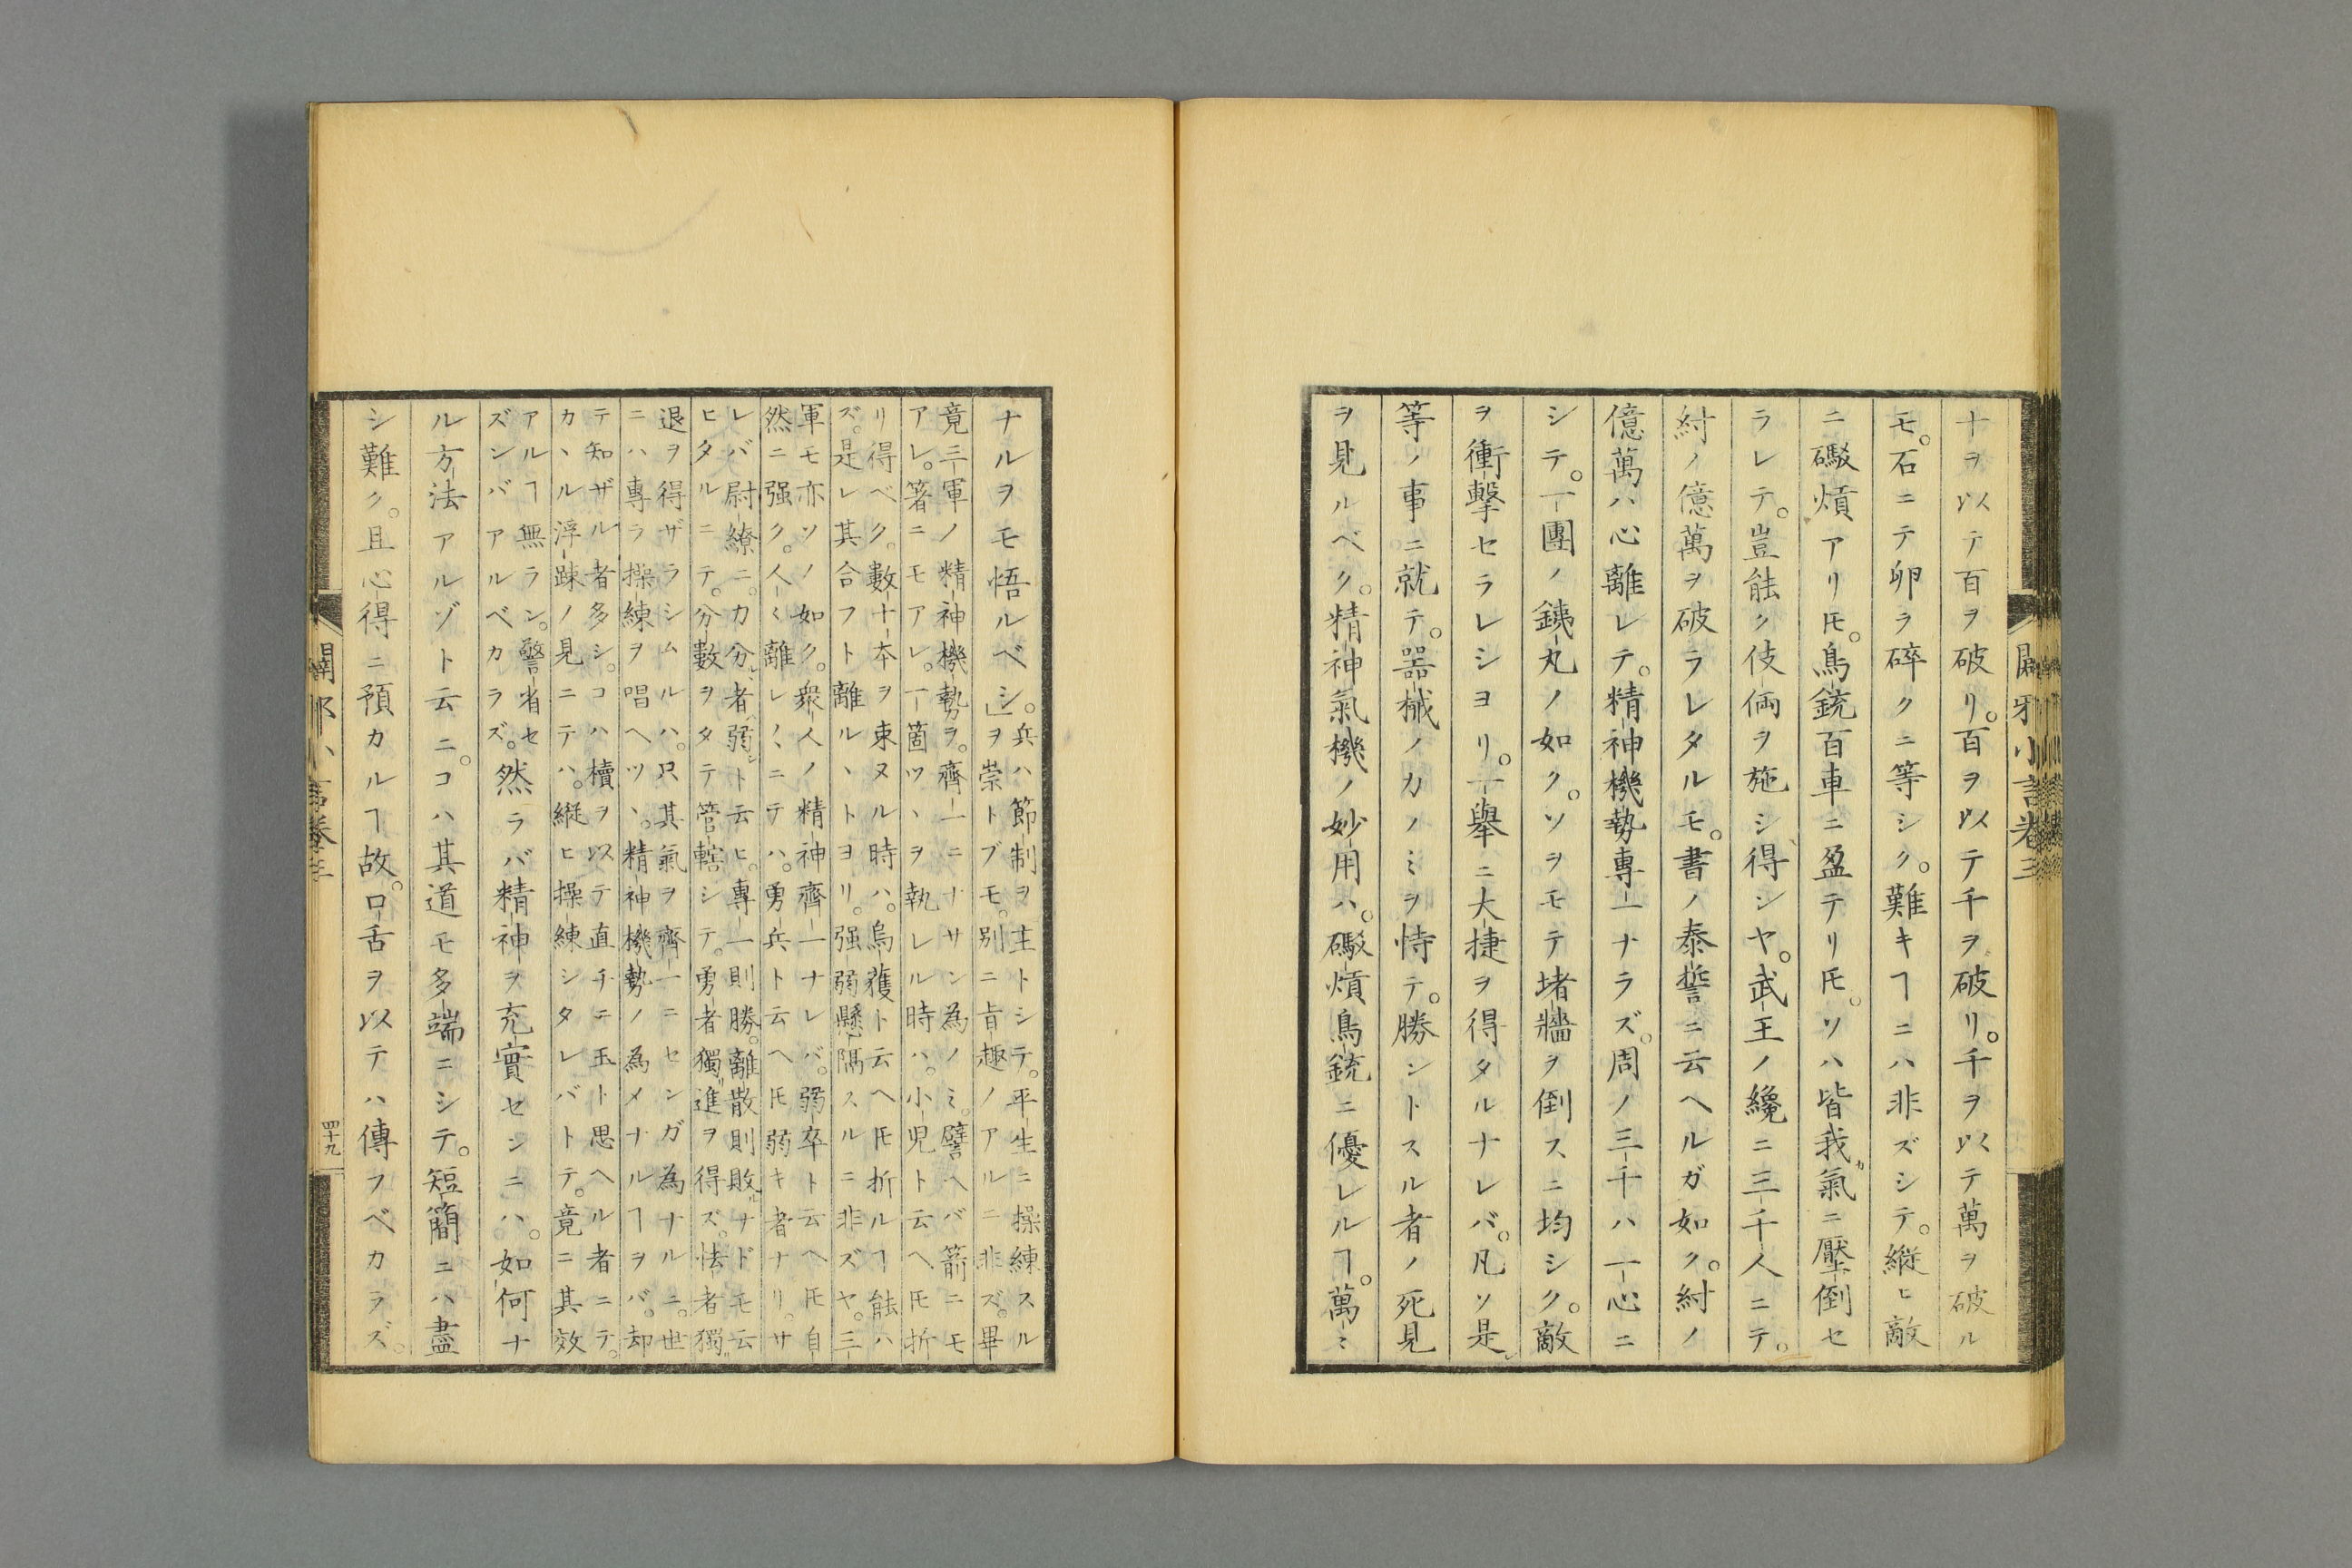 十ヲ以テ百ヲ破リ。百ヲ以テ千ヲ破リ。千ヲ以テ萬ヲ破ル
モ。石ニテ卵ヲ碎クニ等シク。難キヿニハ非ズシテ。縱ヒ敵
ニ礮熕アリ𪜈。鳥銃百車ニ盈テリ𪜈。ソハ皆我氣ニ壓倒セ
ラレテ。豈能ク伎倆ヲ施シ得シヤ。武王ノ纔ニ三千人ニテ。
紂ノ億萬ヲ破ラレタルモ。書ノ泰誓ニ云ヘルガ如ク。紂ノ
億萬ハ心離レテ。精神機勢專一ナラズ。周ノ三千ハ一心ニ
シテ。一團ノ銕丸ノ如ク。ソヲモテ堵牆ヲ倒スニ均シク。敵
ヲ衝撃セラレシヨリ。一擧ニ大捷ヲ得タルナレバ。凡ソ是
等ノ事ニ就テ。器械ノカノミヲ恃テ。勝ントスル者ノ死見
ヲ見ルベク。精神氣機ノ妙用ハ。礮熕鳥銃ニ優レルヿ。萬ミ
ナルヲモ悟ルベシ。」兵ハ節制ヲ主トシテ。平生ニ操練スル
ヲ崇トブモ。別ニ旨趣ノアルニ非ズ。畢
竟三軍ノ精神機勢ヲ。齊一ニナサン為ノミ。譬ヘバ箭ニモ
アレ。箸ニモアレ。一箇ツヽヲ執レル時ハ。小児ト云ヘ𪜈折
リ得ベク。數十本ヲ束ヌル時ハ。烏獲ト云ヘ𪜈折ルヿ能ハ
ズ。是レ其合フト離ルヽトヨリ。强弱懸隔スルニ非ズヤ。三
軍モ亦ソノ如ク。衆人ノ精神齊一ナレバ。弱卒ト云ヘ𪜈自
然ニ强ク。人〻離レ〳〵ニテハ。勇兵ト云ヘ𪜈弱キ者ナリ。サ
レバ尉繚ニ。力分者弱シト云ヒ。專一則勝。離散則敗ナドモ云
ヒタルニテ。分數ヲタテ管轄シテ。勇者獨進ヲ得ズ。怯者獨
退ヲ得ザラシムルハ。只其氣ヲ齊一ニセンガ為ナルニ。世
ニハ專ラ操練ヲ唱ヘツヽ。精神機勢ノ為メナルヿヲバ。却
テ知ザル者多シ。コハ櫝ヲ以テ直チニ玉ト思ヘル者ニテ。
カヽル浮踈ノ見ニテハ。縱ヒ操練シタレバトテ。竟ニ其效
アルヿ無ラン。警省セ
ズンバアルベカラズ。然ラバ精神ヲ充實センニハ。如何ナ
ル方法アルゾト云ニ。コハ其道モ多端ニシテ。短簡ニハ盡
シ難ク。且心得ニ預カルヿ故。口舌ヲ以テハ傳フベカラズ。
四十九